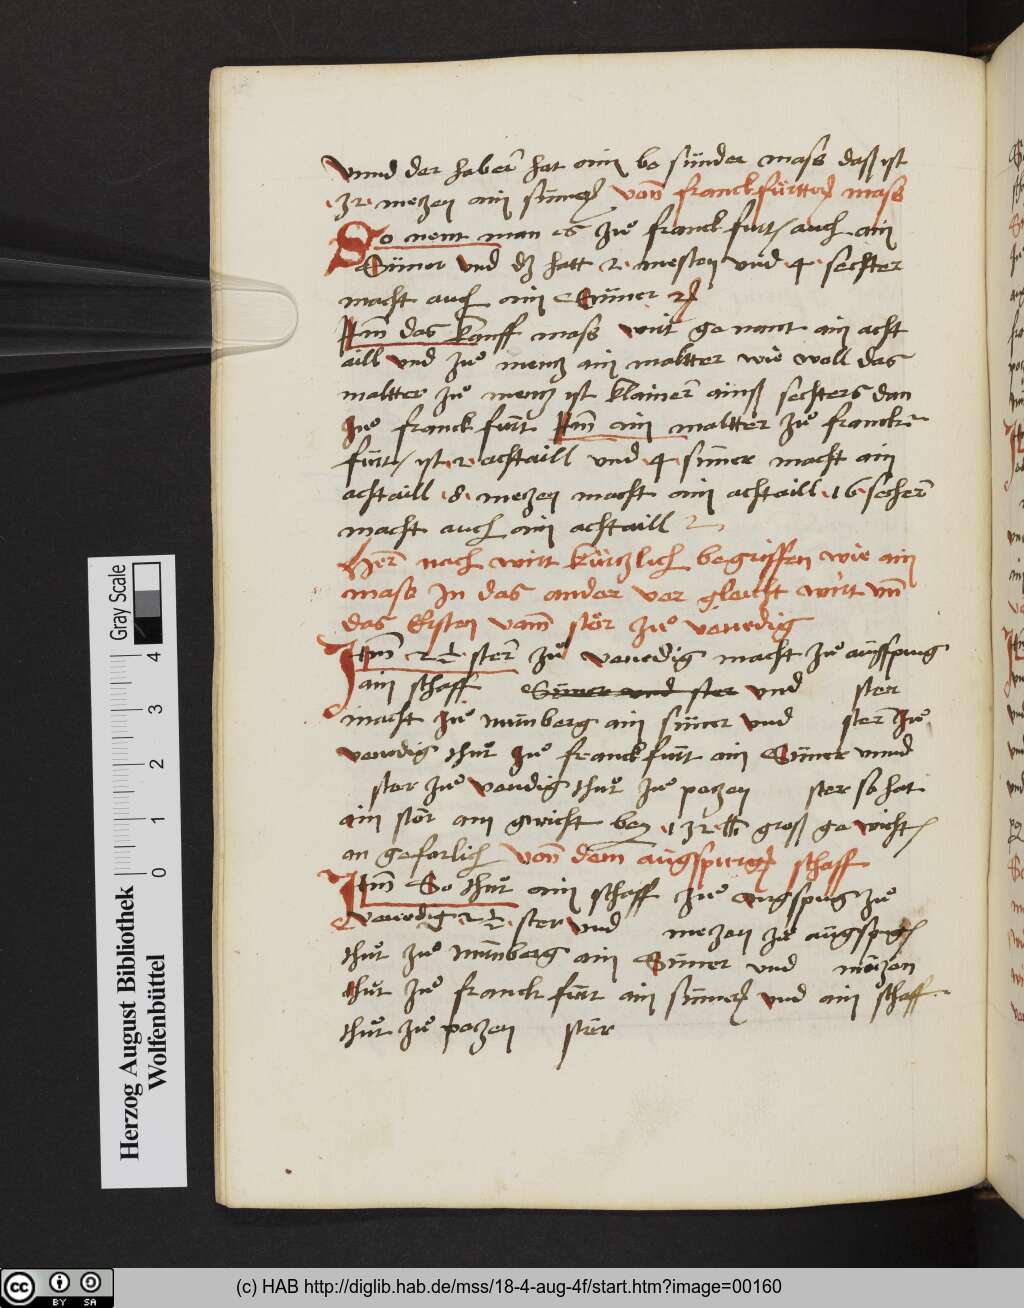 Vnnd der haberñ hat ain be sünder mass dass ist
·32· meczen ain sümer von franckfürtter mass
So nent man es zuͦ franck furt / auch ain
Sümer vnd dz hatt ·2· mesten vnd ·4· sechter
macht auch ain Sümer
Itm̄ das kauff mass wirt ge nant ain acht
aill vnd zuͦ mencz ain maltter wie woll das
maltter zuͦ mencz ist klainer ainss sechters dan
zuͦ franck fürt Itm̄ ain maltter zuͦ franck
fürt / ist ·2· achtaill vnd ·4· simer macht ain
achtaill ·8· meczen macht ain achtaill ·16· secherr
macht auch ain achtaill
Herr nach wirt kürczlich begriffen wie ain
mass In das ander ver gleicht wirt vn̄
das Ersten vom stör zuͦ venedig
Itm̄ ster zuͦ venedig macht zuͦ aügspurg
ain schaff Sümer vnd ster vnd ster
macht zuͦ nürnberg ain sümer vnd ster zuͦ
venedig thuͦt zuͦ franck fürt ain Sümer vnnd
ster zuͦ venedig thuͦt zuͦ poczen ster so hat
ain stör am gwicht bey ·132· lb gross ge wicht /
an geferlich von dem aügspurger schaff
Itm̄ So thuͦt ain schaff zuͦ augspurg zuͦ
venedig ster vnd meczen zuͦ aügspurg
thuͦt zuͦ nürnberg ain Sümer vnd meczen
thuͦt zuͦ franck fürt ain sümer vnd ain schaff
thuͦt zuͦ poczen stër
Gray Scale
4
3
2
1
0
Herzog August Bibliothek
Wolfenbüttel
cc BY SA
(c) HAB http://diglib.hab.de/mss/18-4-aug-4f/start.htm?image=00160